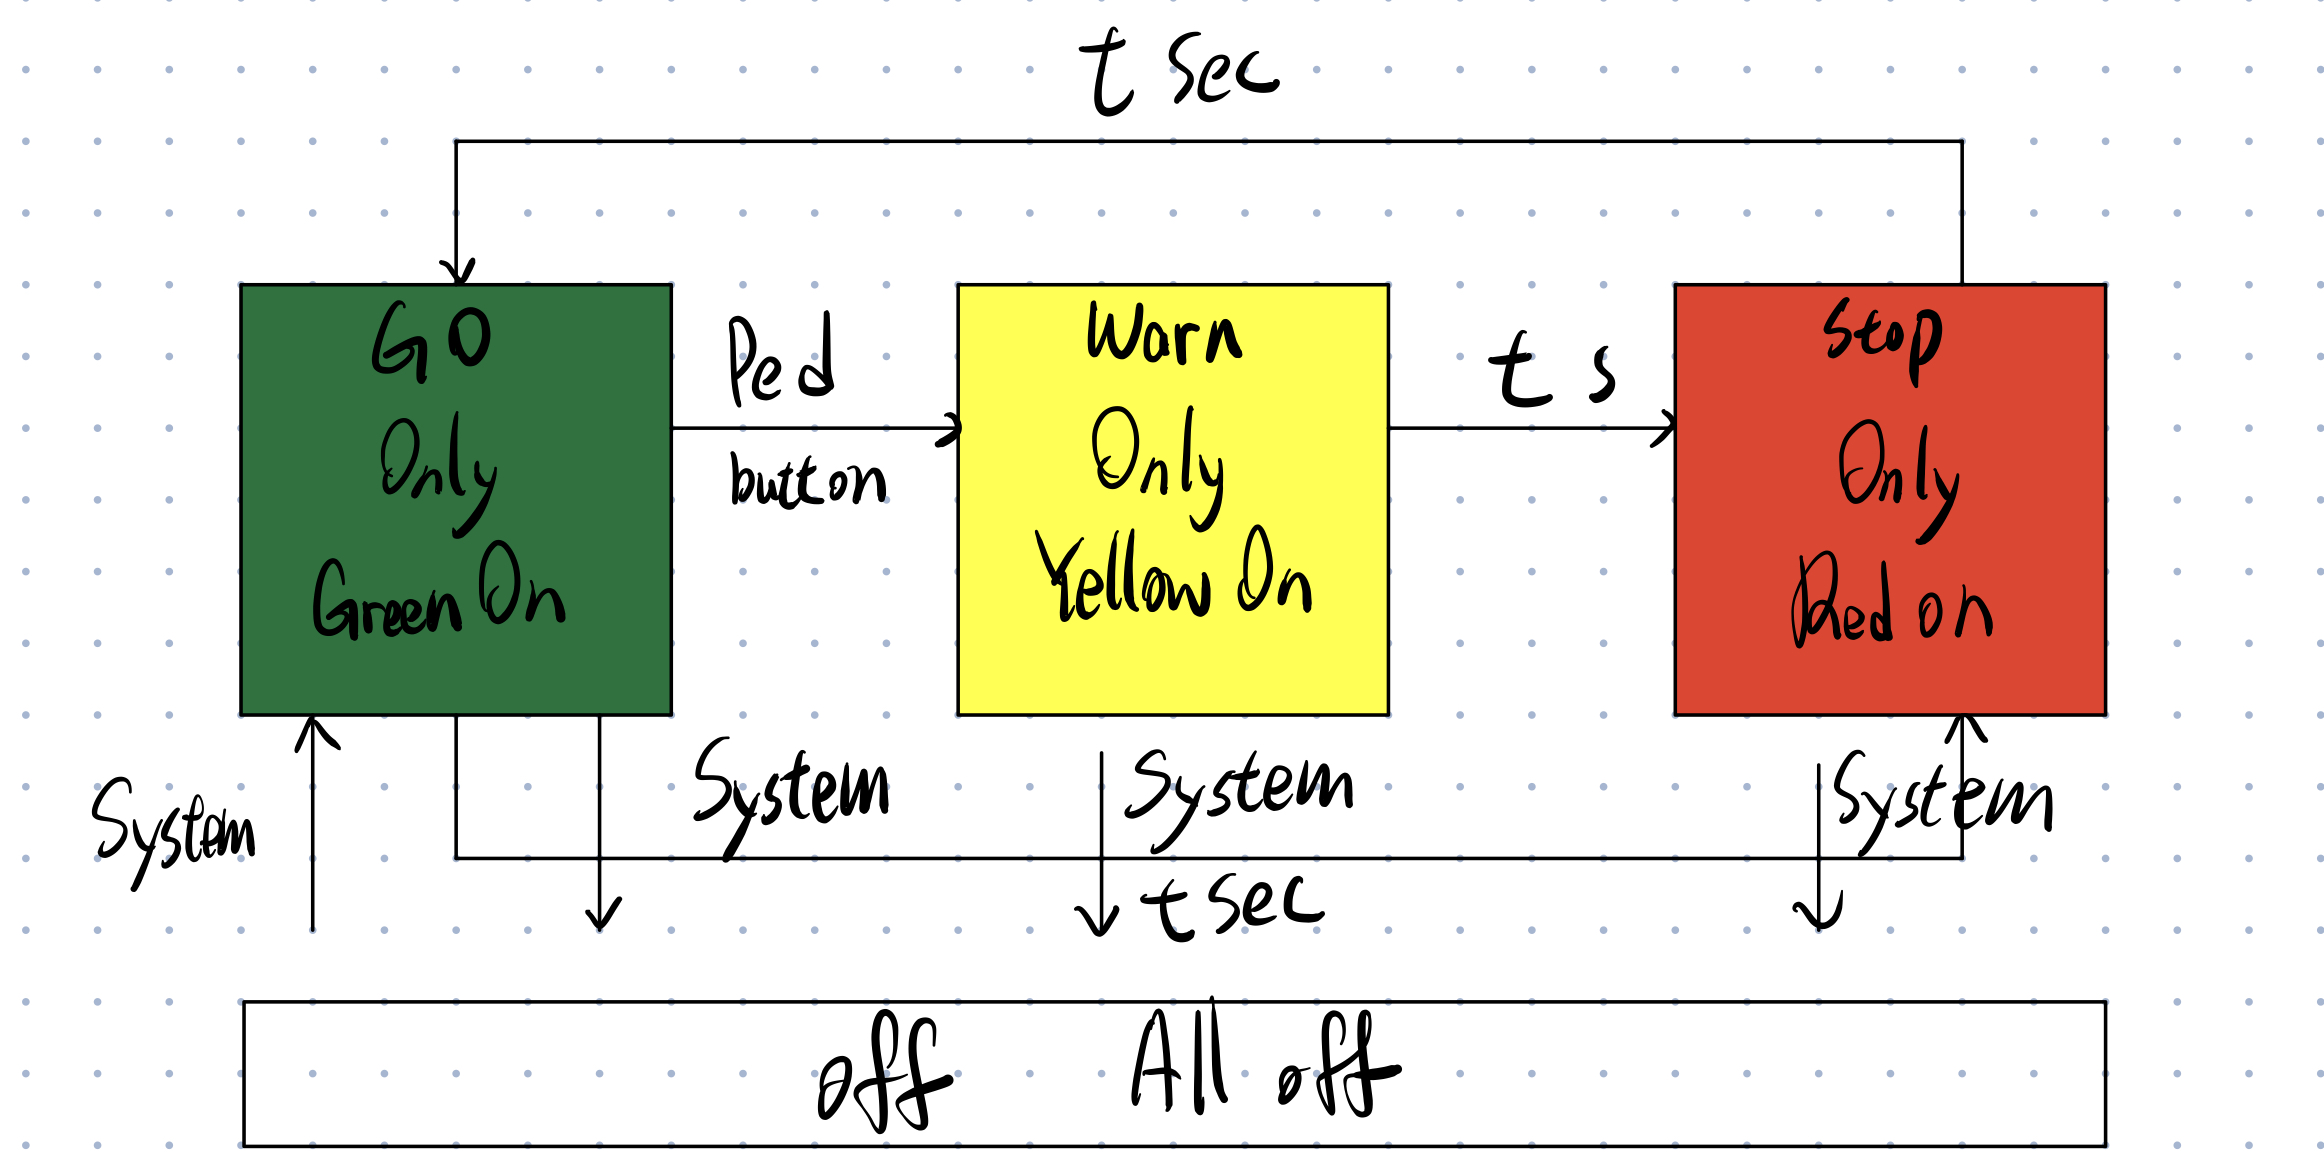 t sec
GO
Only
Green On
Ped
button
Warn
Only
Yellow On
t s
Stop
Only
Red on
System
System
System
System
t sec
off All off